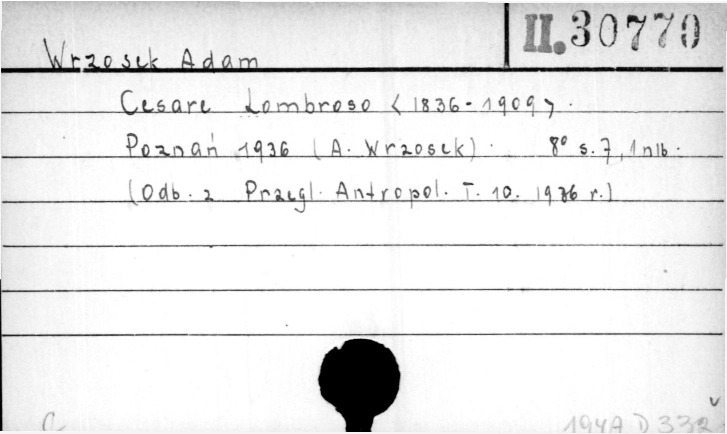 II.30770
Wrzosek Adam
Cesare Lombroso < 1836-1909 > .
Poznań 1936 (A. Wrzosek) . 8° s. 7, 1 nlb.
(Odb. z Przegl. Antropol. T. 10. 1936 r.)
194A D 332